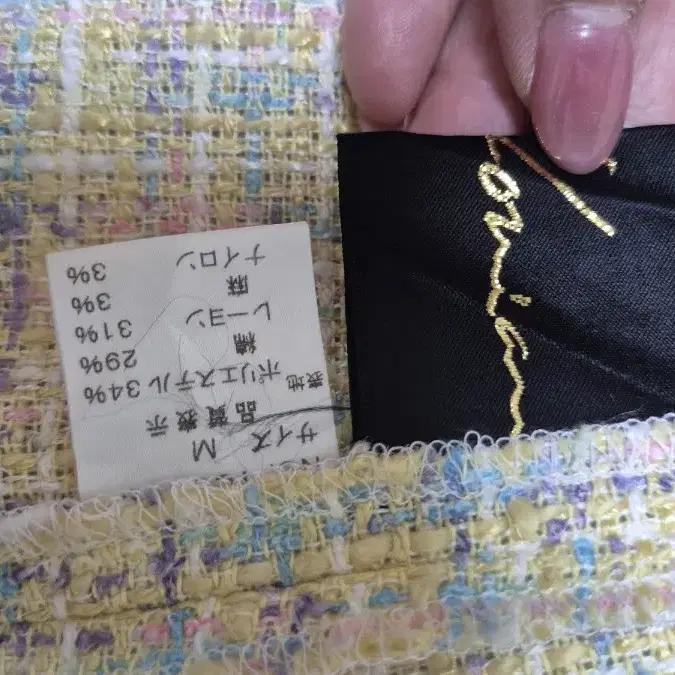 サイズ M
品質表示
表地 ポリエステル 34%
綿 29%
レーヨン 31%
麻 3%
ナイロン 3%